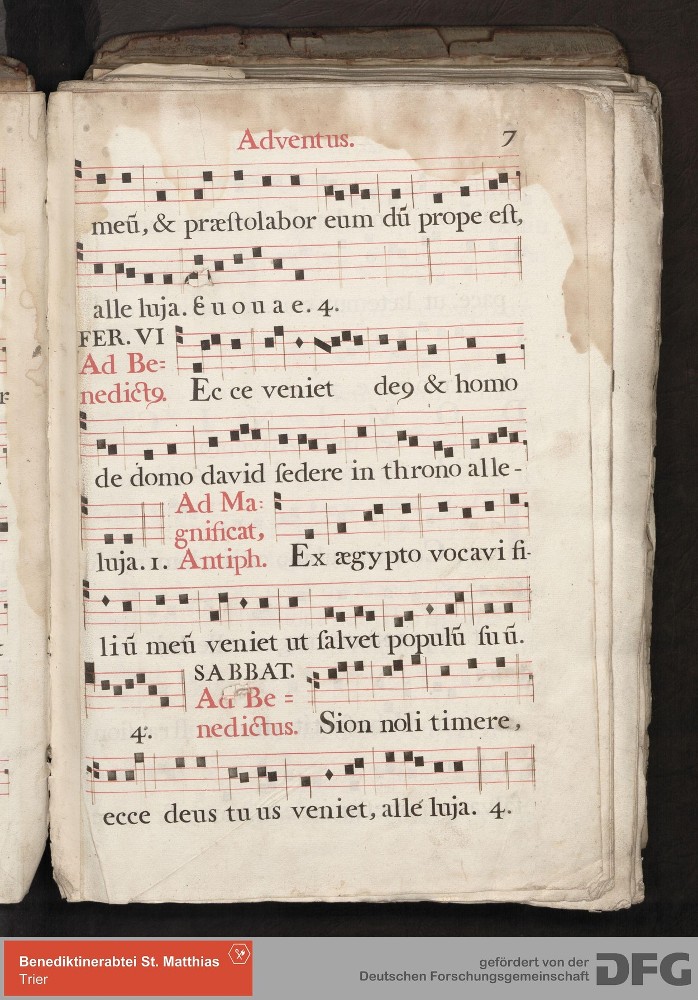 Adventus. 7
meũ, & præſtolabor eum dũ prope eſt,
alle luja. E u o u a e. 4.
FER. VI
Ad Be=
nedictꝯ. Ec ce veniet deꝯ & homo
de domo david ſedere in throno alle-
Ad Ma:
gnificat,
luja. 1. Antiph. Ex ægypto vocavi fi-
liũ meũ veniet ut ſalvet populũ ſuũ.
SABBAT.
Ad Be=
4. nedictus. Sion noli timere,
ecce deus tuus veniet, alle luja. 4.
Benediktinerabtei St. Matthias
Trier
gefördert von der
Deutschen Forschungsgemeinschaft DFG